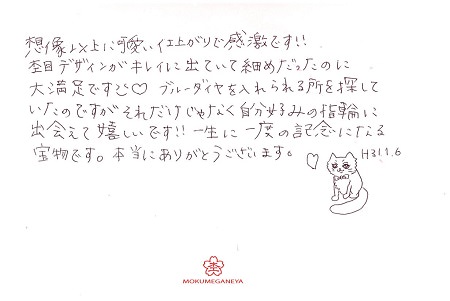 想像以上に可愛い仕上がりで感激です!!
杢目デザインがキレイに出ていて細めだったのに
大満足です♡ ブルーダイヤを入れられる所を探して
いたのですがそれだけじゃなく自分好みの指輪に
出会えて嬉しいです!! 一生に一度の記念になる
宝物です。本当にありがとうございます。♡
H31.1.6
MOKUMEGANEYA